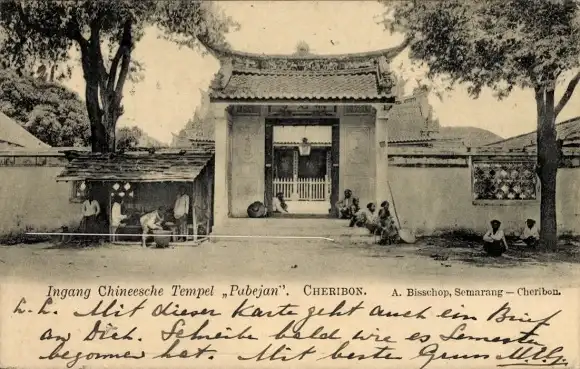 Ingang Chineesche Tempel „Pabejan". CHERIBON. A. Bisschop, Semarang — Cheribon.
L. L. Mit dieser Karte geht auch ein Brief
an Dich. Schreibe bald wie es Semester
begonnen hat. Mit beste Gruss